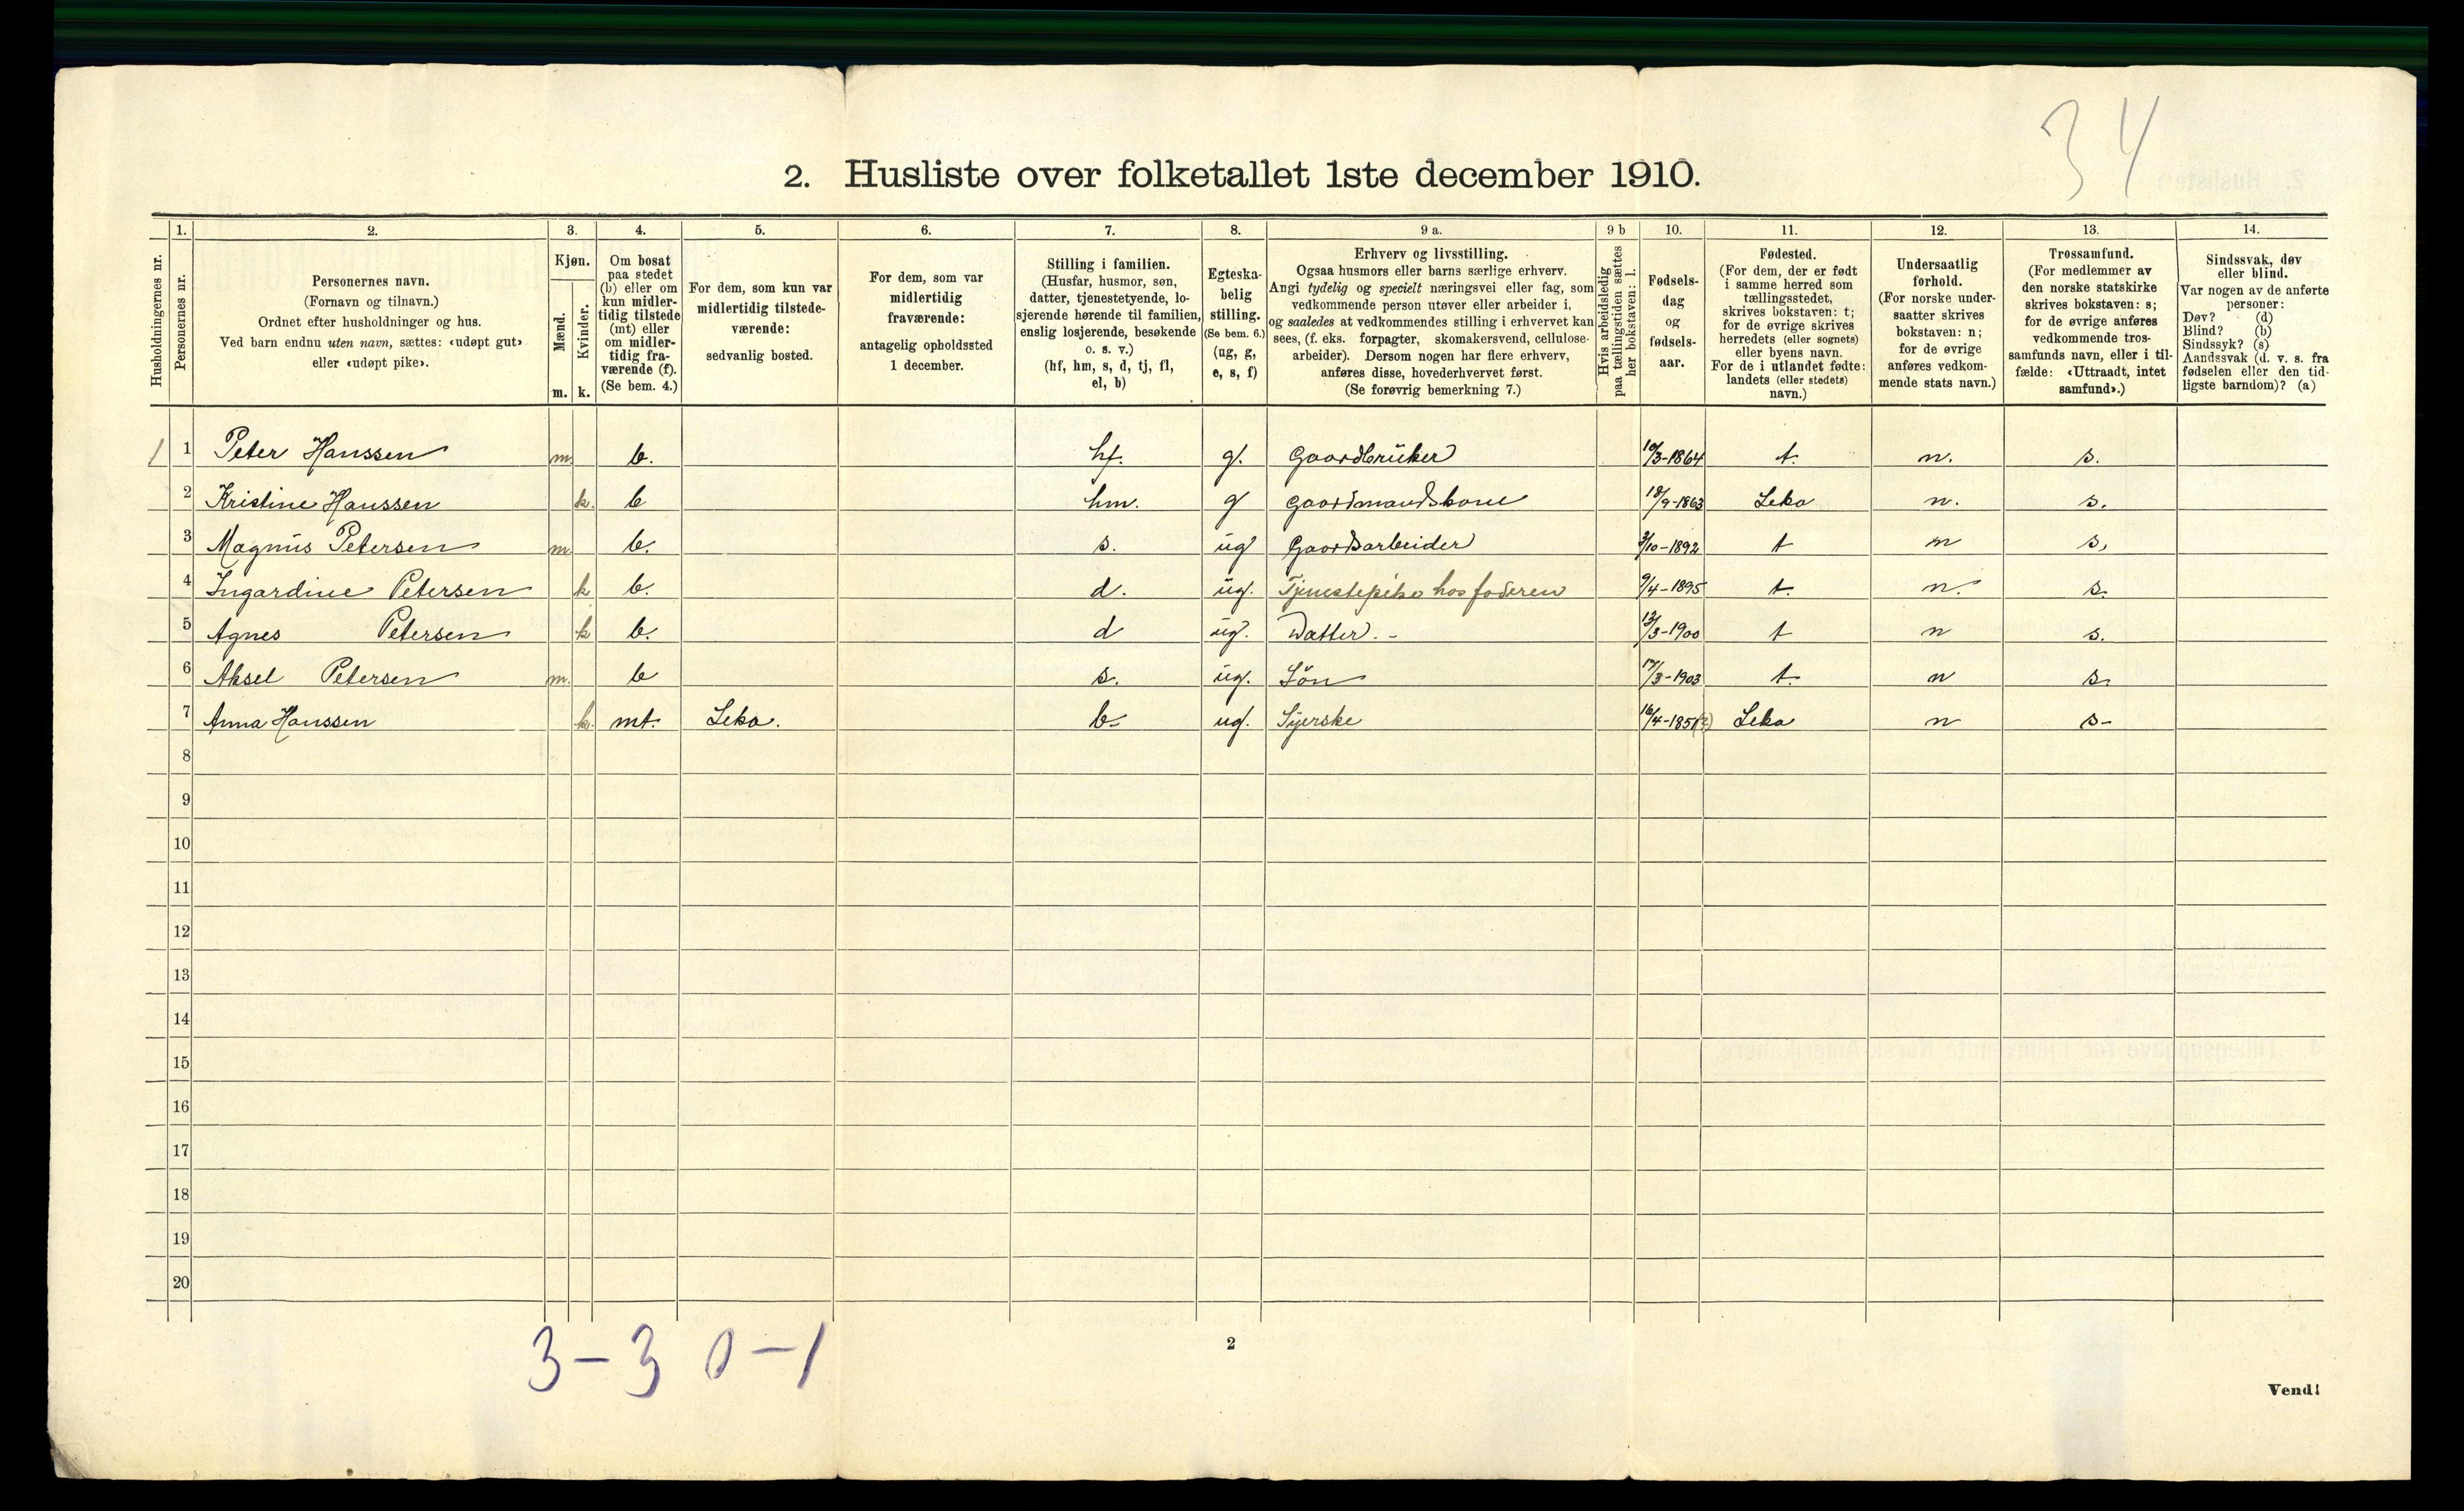 34
2. Husliste over folketallet 1ste december 1910.
1. 2. 3. 4. 5. 6. 7. 8. 9 a. 9 b 10. 11. 12. 13. 14.
Husholdningernes nr.
Personernes nr.
Personernes navn.
(Fornavn og tilnavn.)
Ordnet efter husholdninger og hus.
Ved barn endnu uten navn, sættes: «udøpt gut»
eller «udøpt pike».
Kjøn.
Mænd.
Kvinder.
m. k.
Om bosat
paa stedet
(b) eller om
kun midler-
tidig tilstede
(mt) eller
om midler-
tidig fra-
værende (f).
(Se bem. 4.)
For dem, som kun var
midlertidig tilstede-
værende:
sedvanlig bosted.
For dem, som var
midlertidig
fraværende:
antagelig opholdssted
1 december.
Stilling i familien.
(Husfar, husmor, søn,
datter, tjenestetyende, lo-
sjerende hørende til familien,
enslig losjerende, besøkende
o. s. v.)
(hf, hm, s, d, tj, fl,
el, b)
Egteska-
belig
stilling.
(Se bem. 6.)
(ug, g,
e, s, f)
Erhverv og livsstilling.
Ogsaa husmors eller barns særlige erhverv.
Angi tydelig og specielt næringsvei eller fag, som
vedkommende person utøver eller arbeider i,
og saaledes at vedkommendes stilling i erhvervet kan
sees, (f. eks. forpagter, skomakersvend, cellulose-
arbeider). Dersom nogen har flere erhverv,
anføres disse, hovederhvervet først.
(Se forøvrig bemerkning 7.)
Hvis arbeidsledig
paa tællingstiden sættes
her bokstaven: l.
Fødsels-
dag
og
fødsels-
aar.
Fødested.
(For dem, der er født
i samme herred som
tællingsstedet,
skrives bokstaven: t;
for de øvrige skrives
herredets (eller sognets)
eller byens navn.
For de i utlandet fødte:
landets (eller stedets)
navn.)
Undersaatlig
forhold.
(For norske under-
saatter skrives
bokstaven: n;
for de øvrige
anføres vedkom-
mende stats navn.)
Trossamfund.
(For medlemmer av
den norske statskirke
skrives bokstaven: s;
for de øvrige anføres
vedkommende tros-
samfunds navn, eller i til-
fælde: «Uttraadt, intet
samfund».)
Sindssvak, døv
eller blind.
Var nogen av de anførte
personer:
Døv? (d)
Blind? (b)
Sindssyk? (s)
Aandssvak (d. v. s. fra
fødselen eller den tid-
ligste barndom)? (a)
1 1 Peter Hanssen m. b. hf. g. Gaardbrüker 10/3-1864 t. n. s.
2 Kristine Hanssen k. b hm. g Gaardmandskone 18/9-1863 Leka n. s.
3 Magnüs Petersen m. b. s. üg Gaardsarbeider 3/10-1892 t n s,
4 Ingardine Petersen k b. d. üg. Tjenestepike hos faderen 9/4-1895 t. n. s.
5 Agnes Petersen k b. d üg. Datter. - 13/3-1900 t n s.
6 Aksel Petersen m. b s. üg. Sön 17/3-1903 t. n s.
7 Anna Hanssen k. mt. Leka. b. ug. Syerske 16/4-1851(?) Leka n s-
8
9
10
11
12
13
14
15
16
17
18
19
20
3-3 0-1
2
Vend!